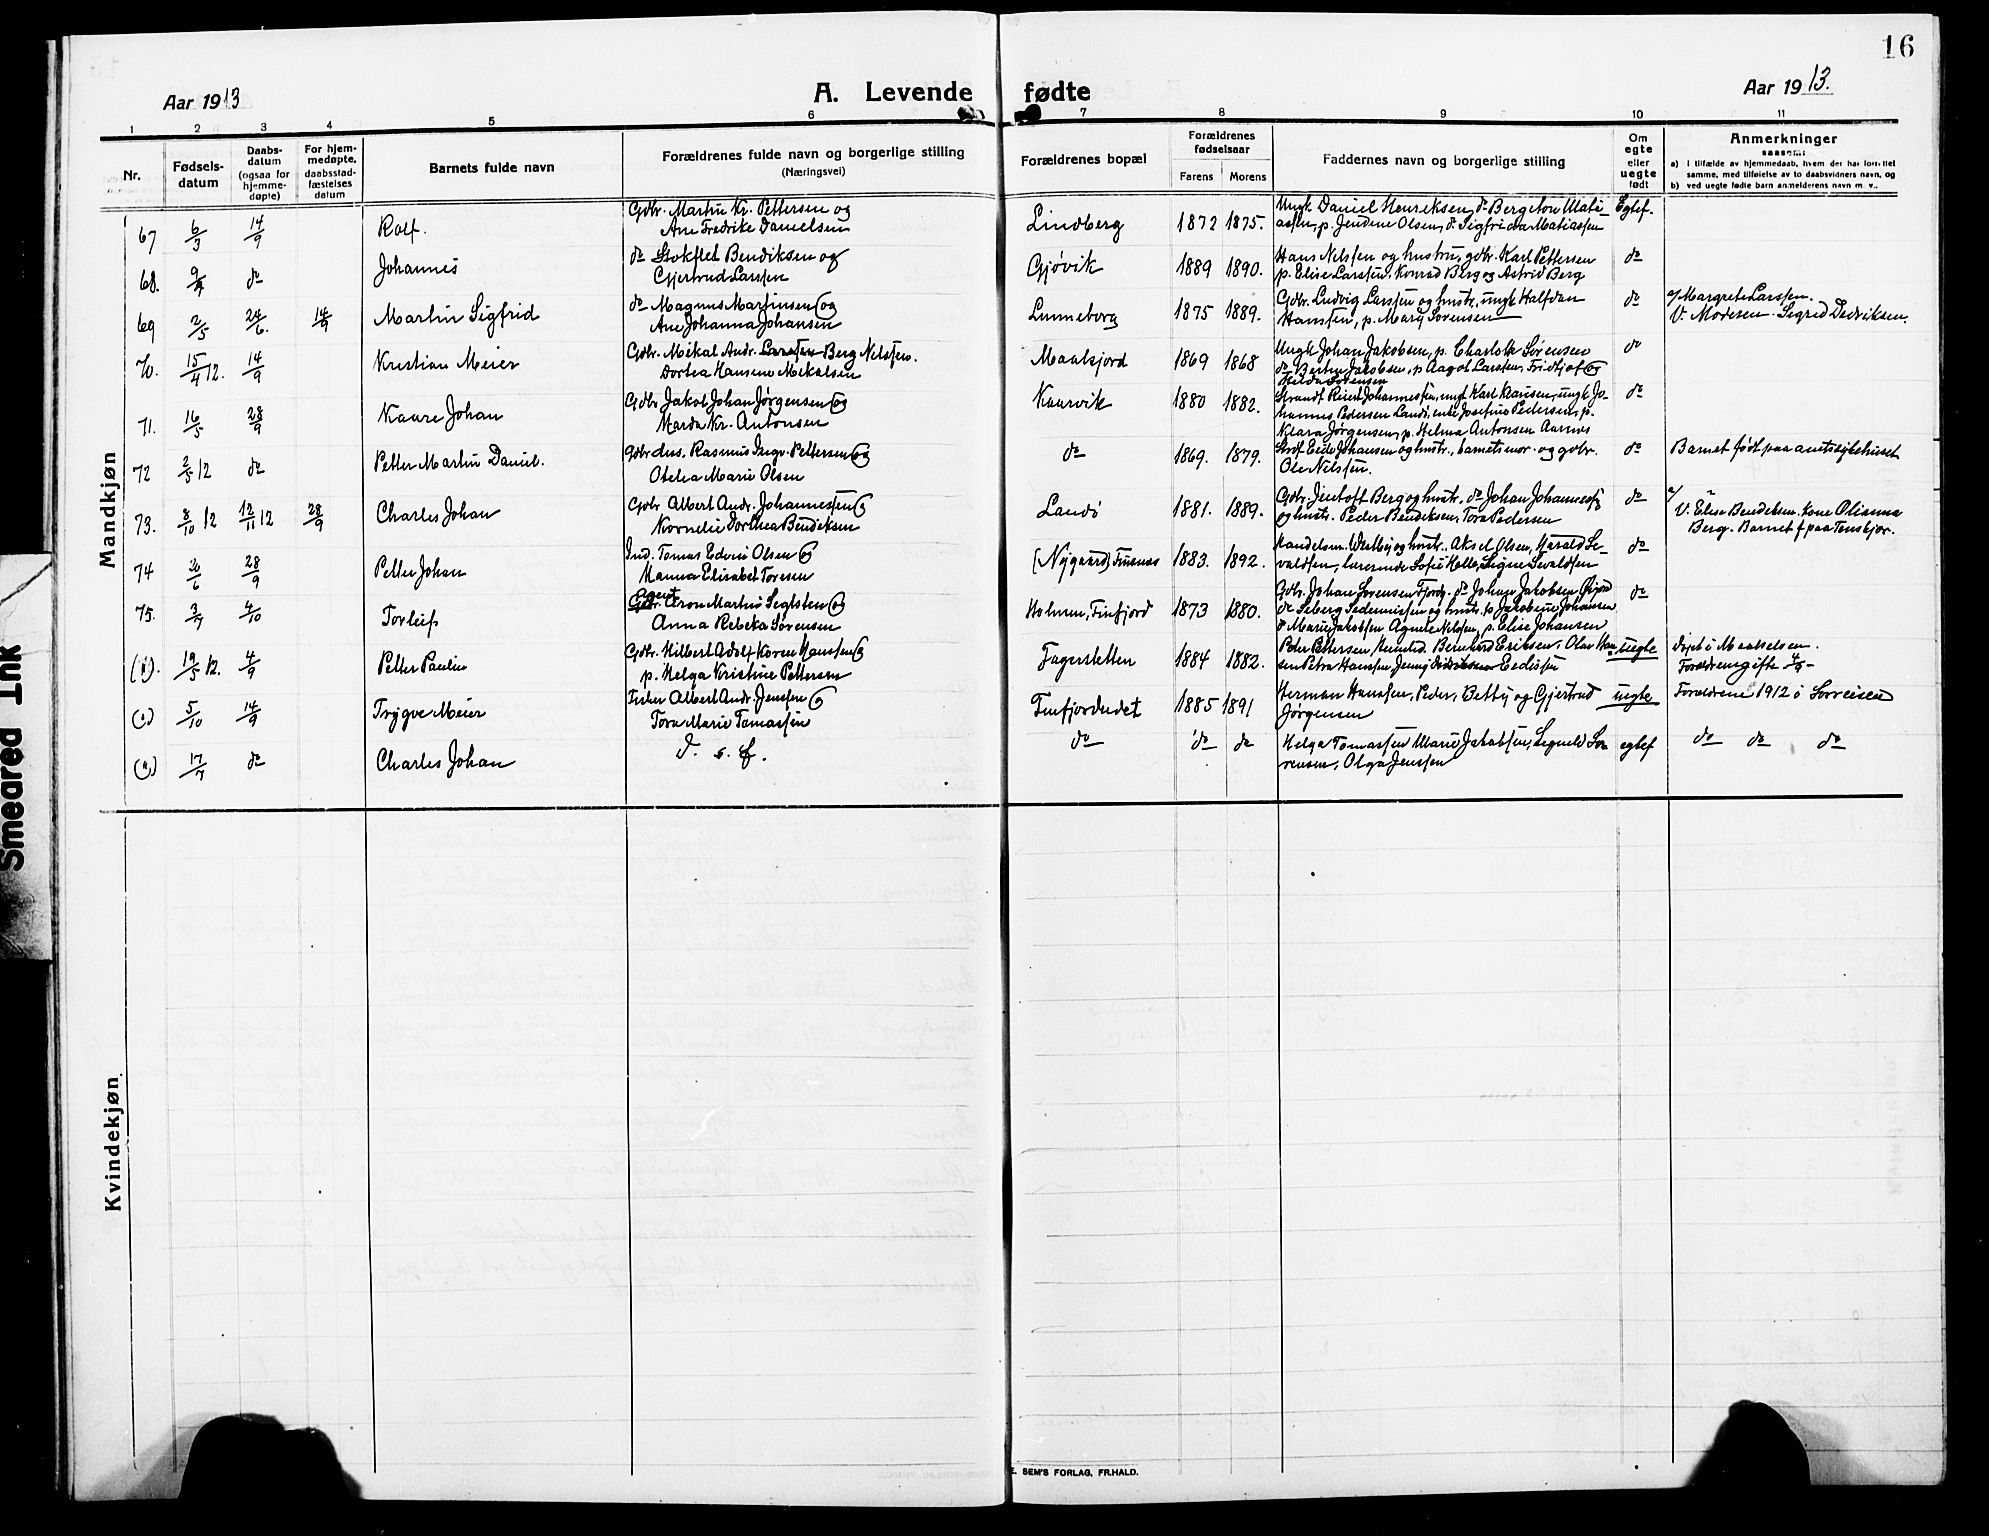 16
Aar 1913
A. Levende fødte
Aar 1913.
1 2 3 4 5 6 7 8 9 10 11
Nr.
Fødsels-
datum
Daabs-
datum
(ogsaa for
hjemme-
døpte)
For hjem-
medøpte,
daabsstad-
fæstelses
datum
Barnets fulde navn
Forældrenes fulde navn og borgerlige stilling
(Næringsvei)
Forældrenes bopæl
Forældrenes
fødselsaar
Farens Morens
Faddernes navn og borgerlige stilling
Om
egte
eller
uegte
født
Anmerkninger
saasom:
a) i tilfælde av hjemmedaab, hvem der har forrettet
samme, med tilføielse av to daabsvidners navn, og
b) ved uegte fødte barn anmelderens navn m. v..
Mandkjøn
67 6/3 14/9 Rolf.
Gdbr. Martin Kr. Pettersen og
Ane Fredrike Danielsen
Lindberg 1872 1875.
Ungk. Daniel Henriksen, do Bergeton Mati-
assen, p. Jendine Olsen, do Sigfrida Matiassen
Egtef.
68. do Johannes
do Stokflet Bendiksen og
Gjertrud Larssen
Gjøvik 1889 1890.
Hans Nilssen og hustru, gdbr. Karl Pettersen
p. Elise Larssen, Konrad Berg og Astrid Berg
do
69 2/5 24/6. 14/9 Martin Sigfrid
do Magnus Martinsen og
Ane Johanna Johansen
Lunneborg 1875 1889.
Gdbr. Ludvig Larssen og hustr., ungk. Halfdan
Hanssen, p. Mary Sørensen
do
a/ Margrete Larssen.
V. Sigrid Dedriksen.
70. 15/4 12. 14/9 Kristian Meier
Gdbr. Mikal Andr. Berg Nilssen.
Dortea Hansine Mikalsen
Maalsjord 1869 1868
Ungk. Johan Jakobsen, p. Charlotte Sørensen
do Bertin Jakobsen, p. Aagot Larssen, Fridtjof og
Hilda Sørensen
do
71. 16/5 28/9 Kaare Johan
Gdbr. Jakob Johan Jørgensen og
Marda Kr. Antonsen
Kaarvik 1880 1882.
Johannessen, ungk. Karl Hansen, ungk. Jo-
hannes Pedersen Landø, enke Josefine Pedersen, p.
Klara Jørgensen, p. Helma Antonsen Aarnes
do
72 2/5 12 do Petter Martin Daniel.
Gdbr. Rasmus Ingv. Pettersen og
Otelia Marie Olsen
do 1869. 1879.
Eide Johansen og hustr., barnets mor og gdbr.
Ole Nilssen.
do
Barnet født paa amtssykehuset
73. 8/10 12 12/11 12 28/9 Charles Johan
Gdbr. Albert Andr. Johannessen og
Kornelie Dorthea Bendiksen
Landø 1881. 1889.
Gdbr. Jentoft Berg og hustr., do Johan Johannessen
og hustr. Peder Bendiksen, Tora Pedersen
do
a/
V. Elise Bendiksen, kone Olianna
Berg. Barnet f. paa Tenskjær.
74 28/9 Petter Johan
Ind. Tomas Edvin Olsen og
Manna Elisabet Toresen
(Nygaard) Finnsnes 1883. 1892.
Handelsm. Westby og hustr., Aksel Olsen, Harald Se-
valdsen, lærerinde Sofie Helle, Signe Sevaldsen
do
75. 3/7 4/10 Torleif
Agent
Gdbr. Aron Martin Seglsten og
Anna Rebeka Sørensen
Holmen, Finfjord 1873 1880.
Gdbr. Johan Sørensen Fjord, do Johan Jakobsen
do Seberg Sedeniussen og hustr. p. Jakobine Johansen
do Marie Jakobsen Agnete Nilssen, p. Elise Johansen
do
19/5 12. 4/9 Petter Paulin
Gdbr. Hilbert Adolf Koren Hanssen og
p. Helga Kristine Pettersen
Fagersletten 1884 1882.
Peder Pettersen Heimdal, Bernhard Eriksen, Olav Han-
sen Petra Hanssen Jenny Eedissen
uegte
døpt i Maalselven.
Forældrene gifte 4/9 -
5/10 14/9 Trygve Meier
Fisker Albert Andr. Jenssen og
Tora Marie Tomassen
Finfjordeidet 1885 1891
Herman Hanssen, Peder, Betty og Gjertrud
Jørgensen
uegte
Forældrene 1912 i Sørreisen
17/7 do Charles Johan
d. s. f.
do do do
Helga Tomassen Marie Jakobsen, Signeld Sø-
rensen, Olga Jenssen
egtef
do do do
Kvindekjøn.
E. SEM'S FORLAG, FR.HALD.
Smeared Ink